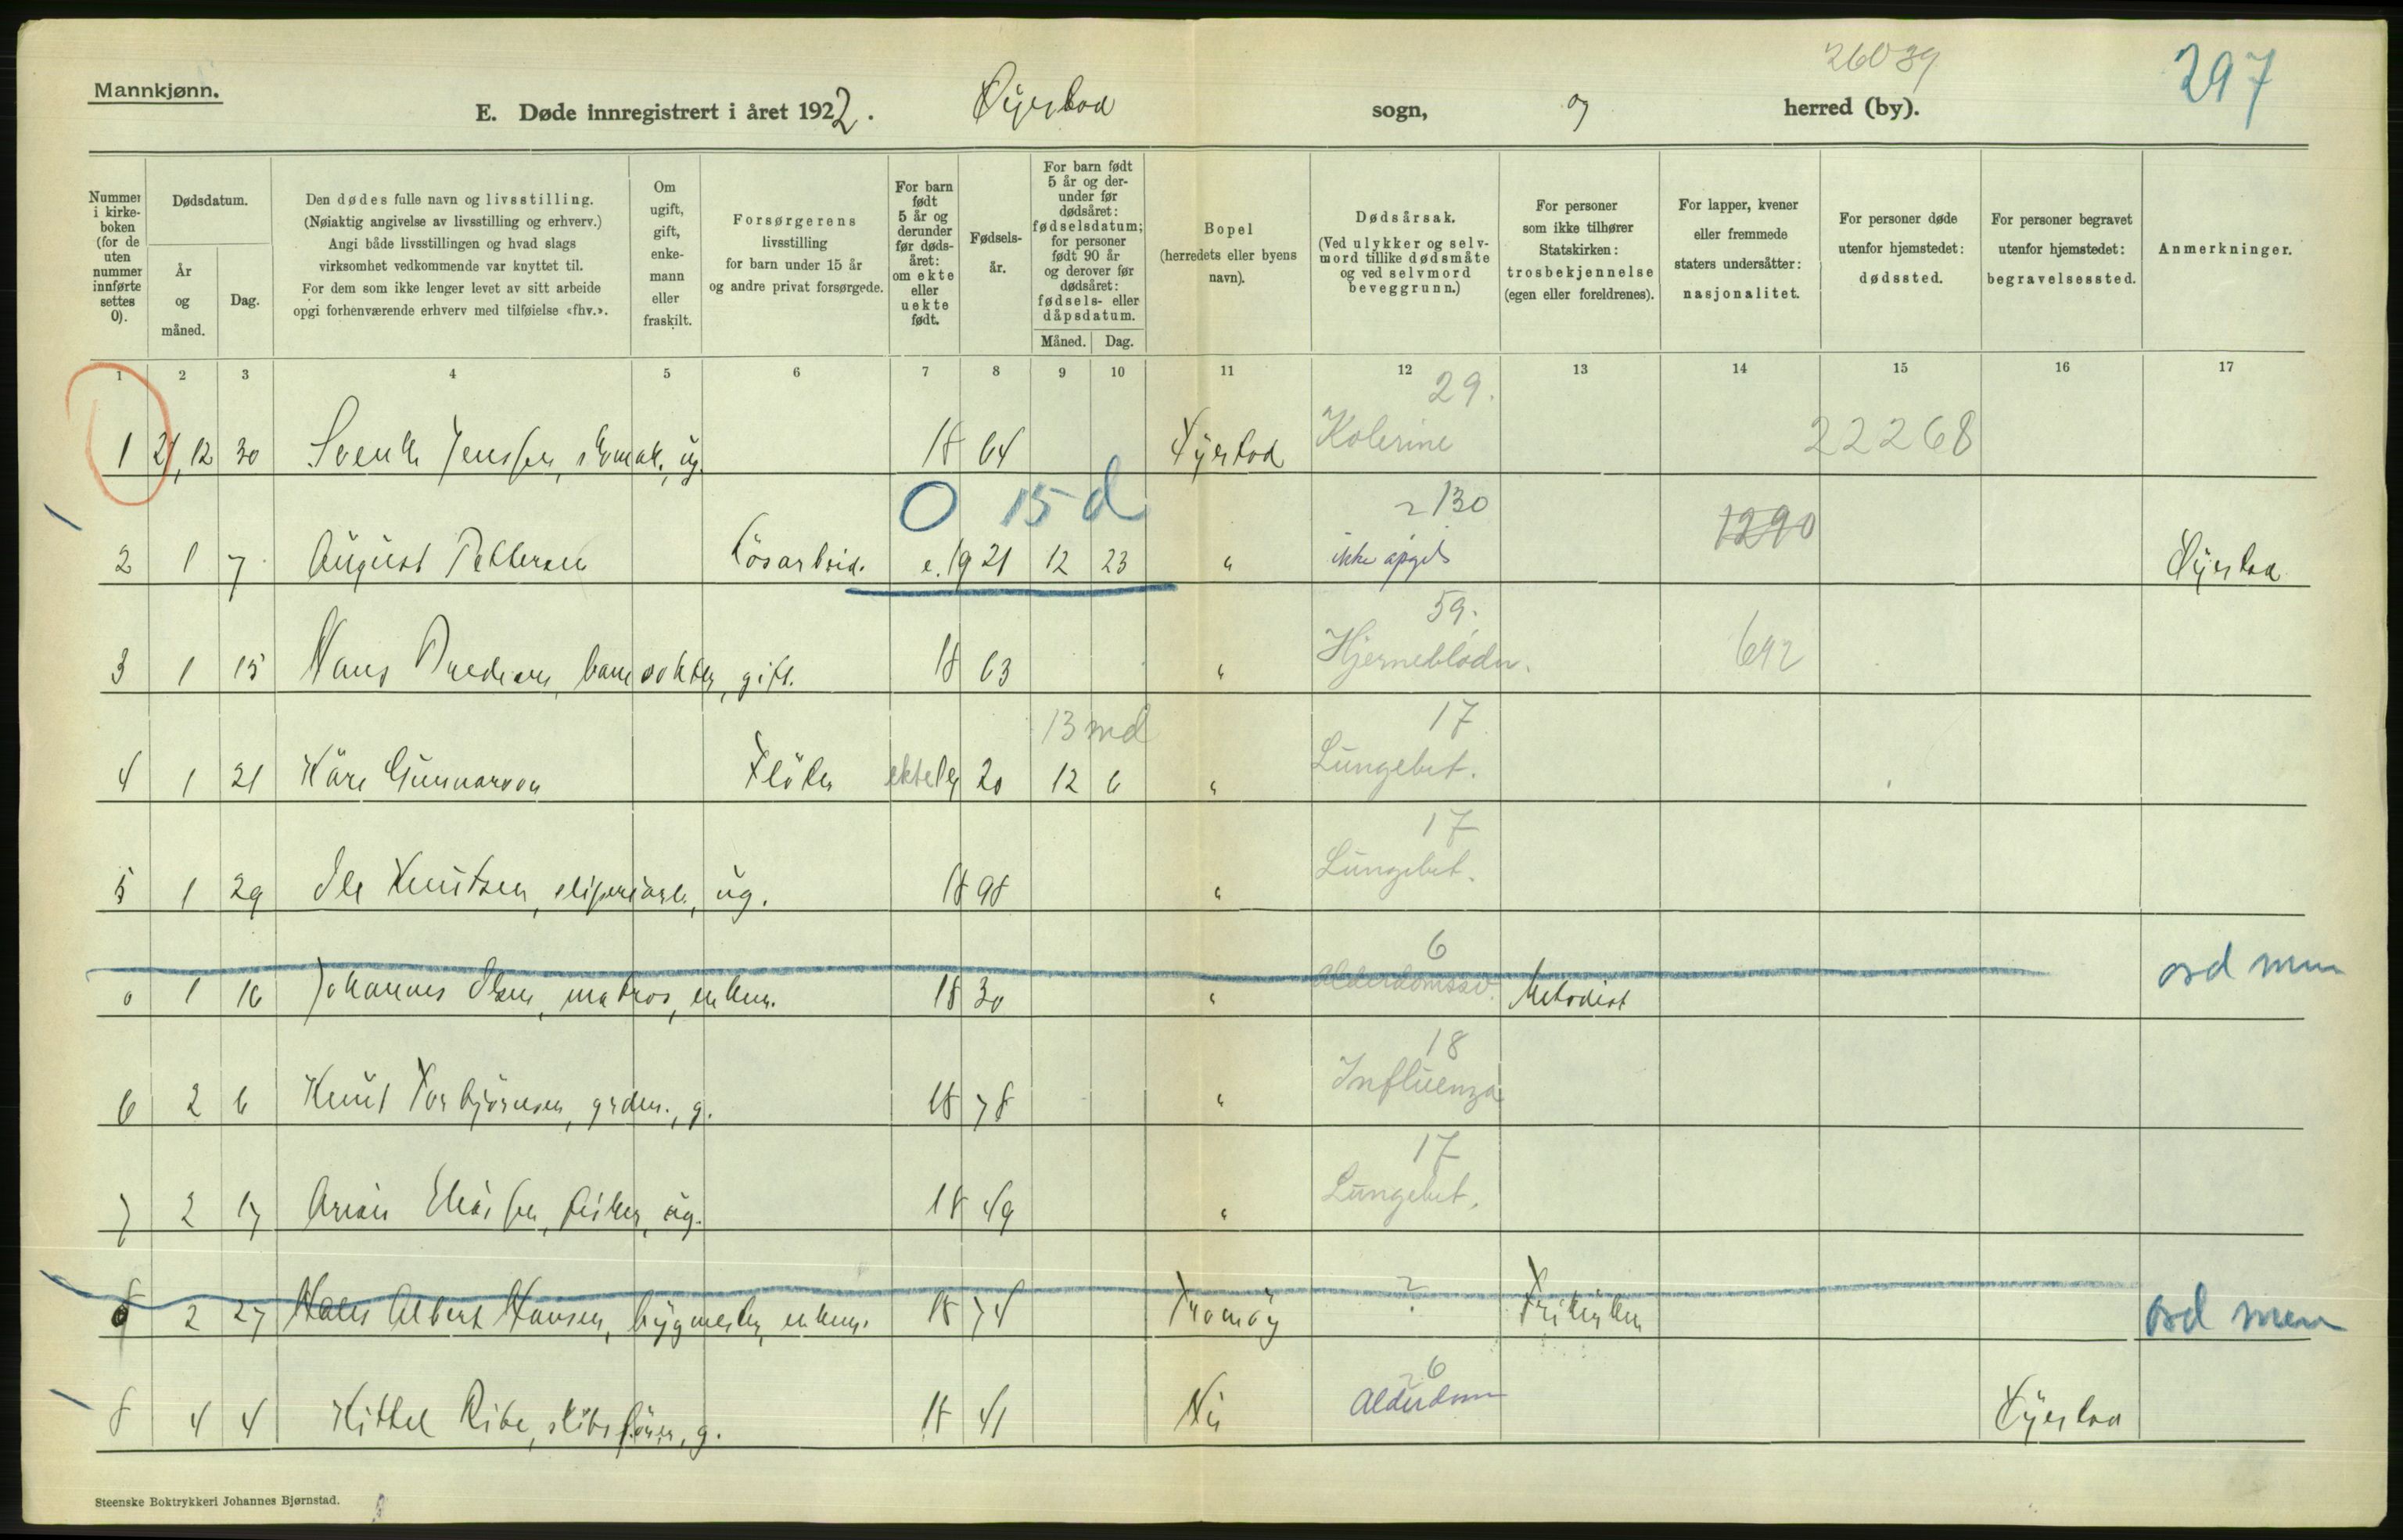 Mannkjønn.
26039
297
E. Døde innregistrert i året 1922. Øyestad sogn, og herred (by).
Nummer i kirkeboken (for de uten nummer innførte settes 0).
Dødsdatum.
År og måned.
Dag.
Den dødes fulle navn og livsstilling. (Nøiaktig angivelse av livsstilling og erhverv.) Angi både livsstillingen og hvad slags virksomhet vedkommende var knyttet til. For dem som ikke lenger levet av sitt arbeide opgi forhenværende erhverv med tilføielse «fhv.».
Om ugift, gift, enkemann eller fraskilt.
Forsørgerens livsstilling for barn under 15 år og andre privat forsørgede.
For barn født 5 år og derunder før dødsåret: om ekte eller uekte født.
Fødselsår.
For barn født 5 år og derunder før dødsåret: fødselsdatum; for personer født 90 år og derover før dødsåret: fødsels- eller dåpsdatum.
Måned. Dag.
Bopel (herredets eller byens navn).
Dødsårsak. (Ved ulykker og selvmord tillike dødsmåte og ved selvmord beveggrunn.)
For personer som ikke tilhører Statskirken: trosbekjennelse (egen eller foreldrenes).
For lapper, kvener eller fremmede staters undersåtter: nasjonalitet.
For personer døde utenfor hjemstedet: dødssted.
For personer begravet utenfor hjemstedet: begravelsessted.
Anmerkninger.
1 2 3 4 5 6 7 8 9 10 11 12 13 14 15 16 17
29.
1 21,12 30 Svenke Jenssen, ug. 18 64 Øyestad Kolerine 22268
0 15 d 130
2 1 7 August Pettersen Løsarbeid. e. 19 21 12 23 " ikke opgit 1290 Øyestad
59.
3 1 15 Hans Pedersen, banevokter, gift. 18 63 " Hjerneblødn. 692
13 md 17
4 1 21 Kåre Gunnarson Fløter ekte 19 20 12 6 " Lungebet.
17
5 1 29 Ole Knutsen, sliperiarb., ug. 18 98 " Lungebet.
6
0 1 16 Johannes Olsen, matros, enkem. 18 30 " Alderdomssv. Metodist ord men
18
6 2 6 Knut Torbjørnsen, grdm., g. 18 78 " Influenza
17
7 2 17 Eliassen, fisker, ug. 18 49 " Lungebet.
0 2 27 Hans Albert Hansen, bygmester, enkem. 18 74 Tromøy ? Frikirken ord men
6
8 4 4 Kittel Ribe, skibsfører, g. 18 41 Alderdom Øyestad
Steenske Boktrykkeri Johannes Bjørnstad.